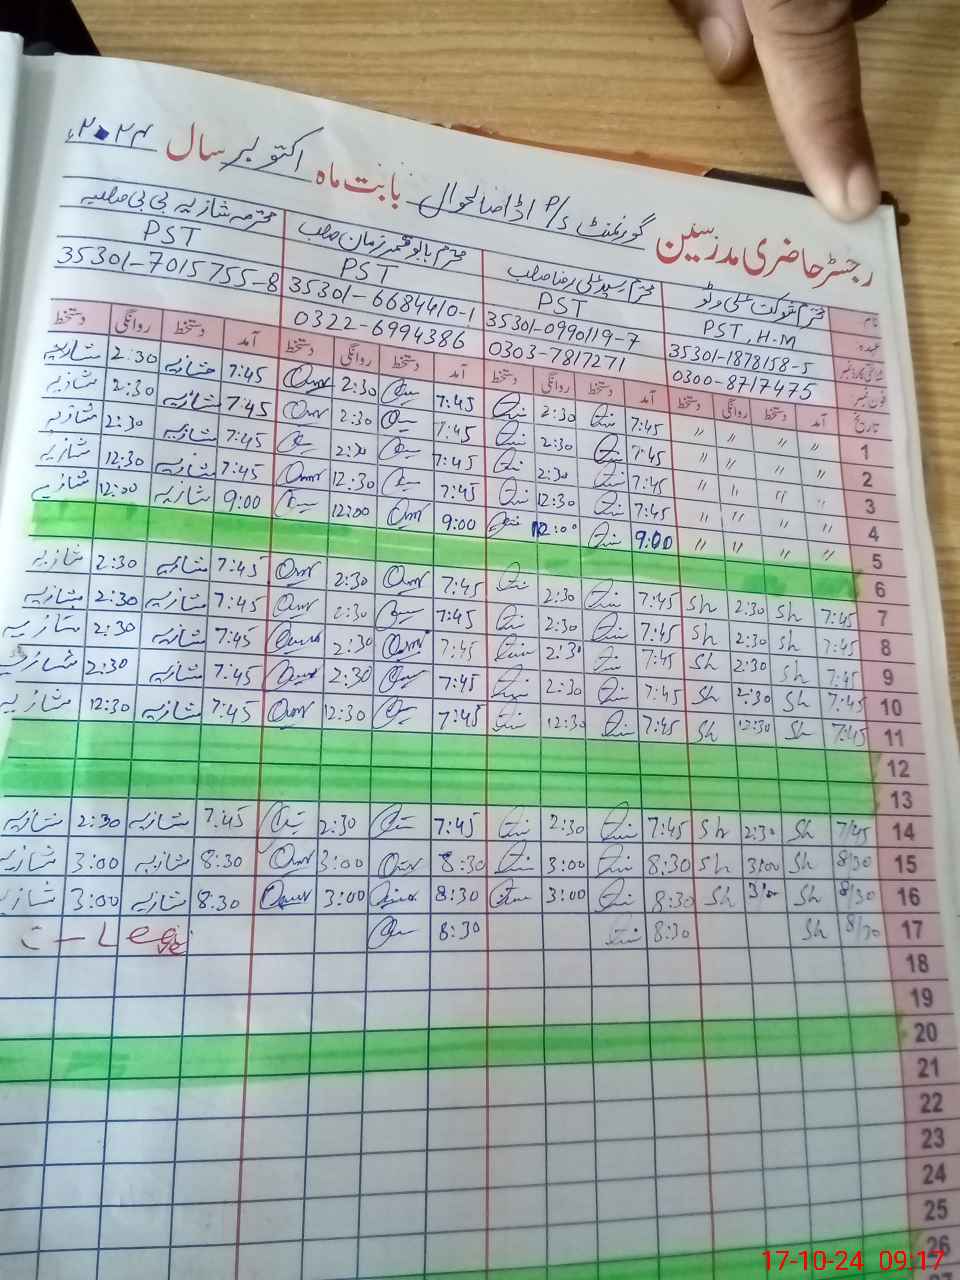 رجسٹر حاضری مدرسین گورنمنٹ P/S اڈا صالحوال بابت ماہ اکتوبر سال ۲۰۲۴ء
نام محترم شوکت علی وٹو محترم سید علی رضا صاحب محترم بابو قمر زمان صاحب محترمہ شازیہ بی بی صاحبہ
عہدہ PST, H.M PST PST PST
35301-1878158-5 35301-0990119-7 35301-6684410-1 35301-7015755-8
فون نمبر 0300-8717475 0303-7817271 0322-6994386
تاریخ آمد دستخط روانگی دستخط آمد دستخط روانگی دستخط آمد دستخط روانگی دستخط آمد دستخط روانگی دستخط
1 〃 〃 〃 〃 7:45 2:30 7:45 2:30 7:45 شازیہ 2:30 شازیہ
2 〃 〃 〃 〃 7:45 2:30 7:45 2:30 7:45 شازیہ 2:30 شازیہ
3 〃 〃 〃 〃 7:45 2:30 7:45 2:30 7:45 شازیہ 2:30 شازیہ
4 〃 〃 〃 〃 7:45 12:30 7:45 12:30 7:45 شازیہ 12:30 شازیہ
5 〃 〃 〃 〃 9:00 12:00 9:00 12:00 9:00 شازیہ 12:00 شازیہ
6
7 7:45 Sh 2:30 Sh 7:45 2:30 7:45 2:30 7:45 شازیہ 2:30 شازیہ
8 7:45 Sh 2:30 Sh 7:45 2:30 7:45 2:30 7:45 شازیہ 2:30 شازیہ
9 7:45 Sh 2:30 Sh 7:45 2:30 7:45 2:30 7:45 شازیہ 2:30 شازیہ
10 7:45 Sh 2:30 Sh 7:45 2:30 7:45 2:30 7:45 شازیہ 2:30 شازیہ
11 7:45 Sh 12:30 Sh 7:45 12:30 7:45 12:30 7:45 شازیہ 12:30 شازیہ
12
13
14 7/45 Sh 2:30 Sh 7:45 2:30 7:45 2:30 7:45 شازیہ 2:30 شازیہ
15 8/30 Sh 3/00 Sh 8:30 3:00 8:30 3:00 8:30 شازیہ 3:00 شازیہ
16 8/30 Sh 3/00 Sh 8:30 3:00 8:30 3:00 8:30 شازیہ 3:00 شازیہ
17 8/30 Sh 8:30 8:30
18
19
20
21
22
23
24
25
26
17-10-24 09:17